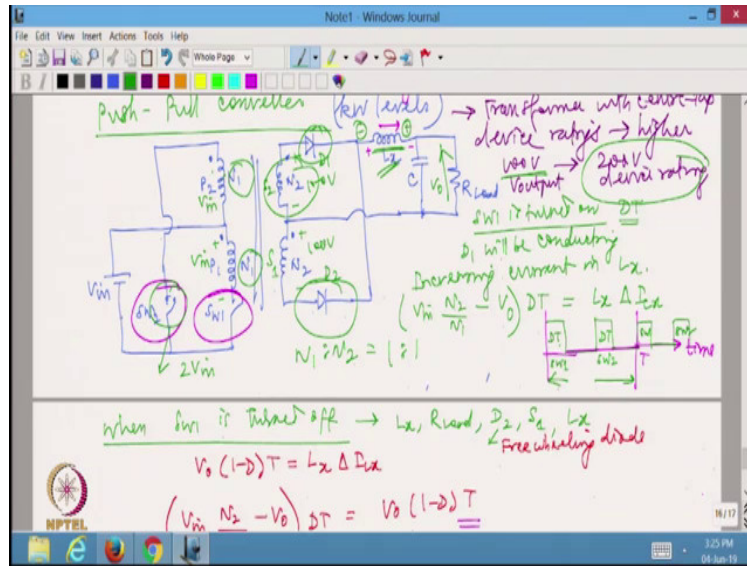 Note1 - Windows Journal
File Edit View Insert Actions Tools Help
Whole Page
B I
Push-Pull converter (kW levels) → Transformer with center-tap
device ratings → higher
100V Voutput → 200V device rating
SW1 is turned on DT
D1 will be conducting
Increasing current in Lx.
(Vin N2/N1 - V0) DT = Lx ΔILx
P2 N1 Vin
N2 D1
+ Lx -
C V0 RLoad
Vin + Vin P1 N1
S1 N2 + 100V
SW2 SW1 D2
2Vin
N1 : N2 = 1 : 1
DT DT time
SW1 SW2 T
When SW1 is turned off → Lx, RLoad, D2, S1, Lx
Freewheeling diode
V0 (1-D) T = Lx ΔILx
(Vin N2 - V0) DT = V0 (1-D) T
NPTEL
16/17
3:25 PM
04-Jun-19